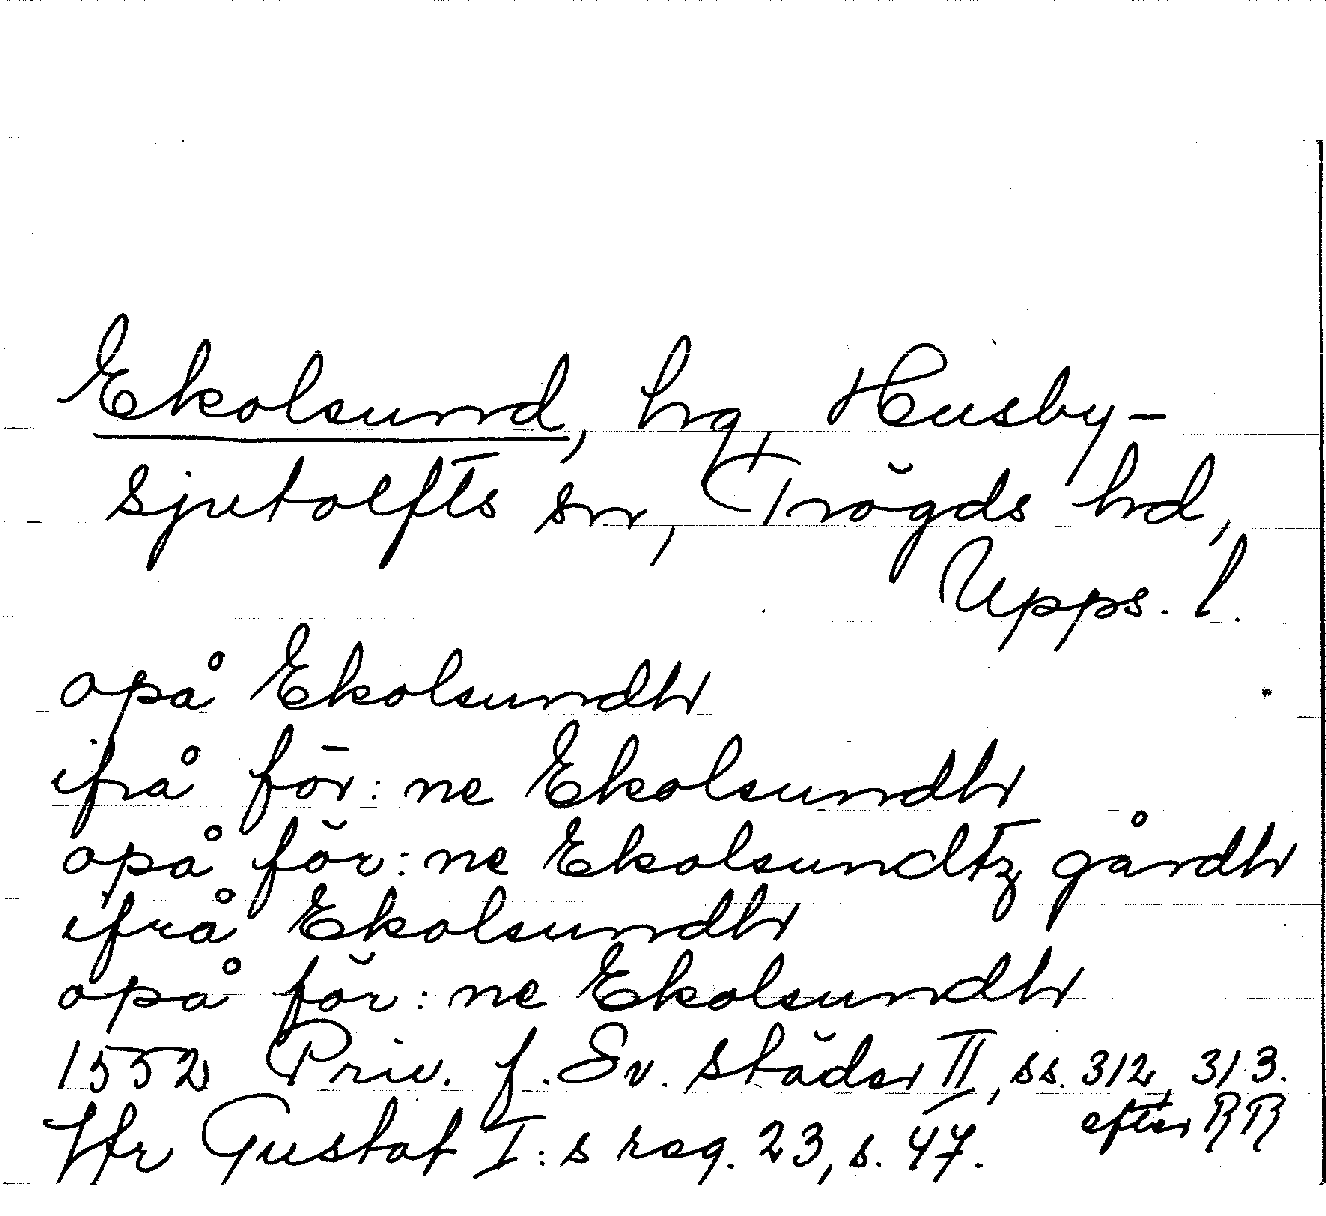 Ekolsund, hg, Husby-
sjutolfts sn, Trögds hd,
Upps. l.
opå Ekolsundh
ifrå för:ne Ekolsundh
opå för:ne Ekolsundtz gårdh
ifrå Ekolsundh
opå för:ne Ekolsundh
1552 Priv. f. Sv. städer II, ss. 312, 313.
efter RR
Jfr Gustaf I:s reg. 23, s. 47.